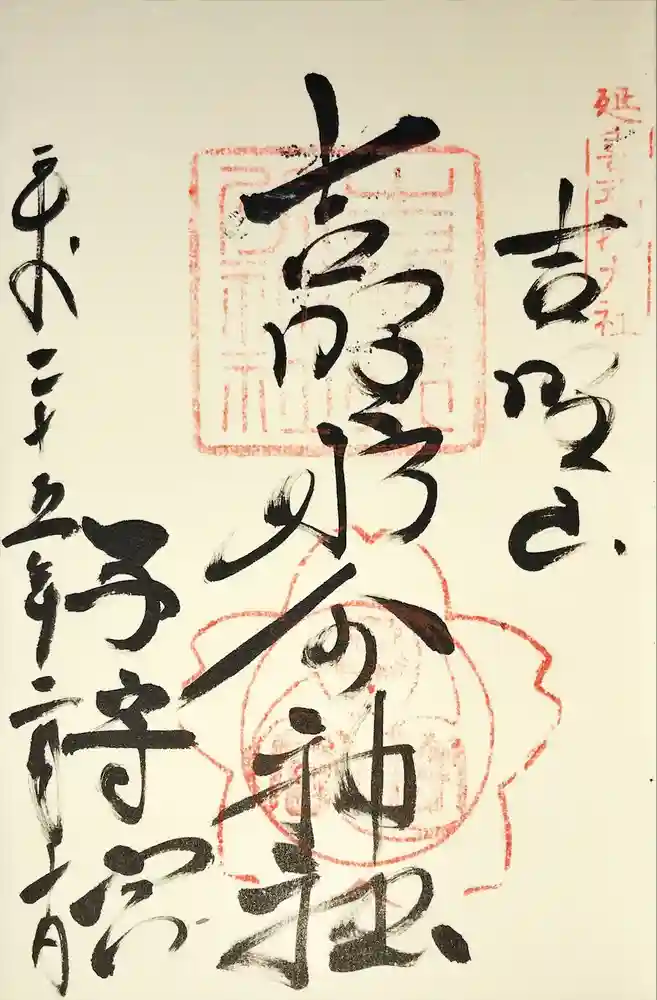 延喜式内社
吉野山
吉野水分神社
子守宮
平成二十五年二月十一日